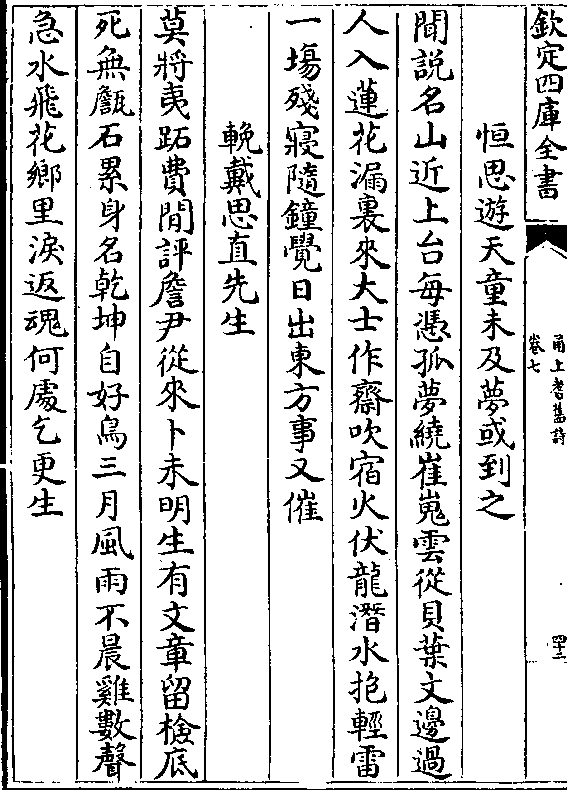 欽定四庫全書
甬上耆舊詩
卷七
四十三
恒思遊天童未及夢或到之
聞説名山近上台每憑孤夢繞崔嵬雲從貝葉文邊過
人入蓮花漏裏來大士作齋吹宿火伏龍潛水抱輕雷
一塲殘寢隨鐘覺日出東方事又催
輓戴思直先生
莫將夷跖費閒評詹尹從來卜未明生有文章留檢底
死無甔石累身名乾坤自好鳥三月風雨不晨雞數聲
急水飛花鄉里淚返魂何處乞更生